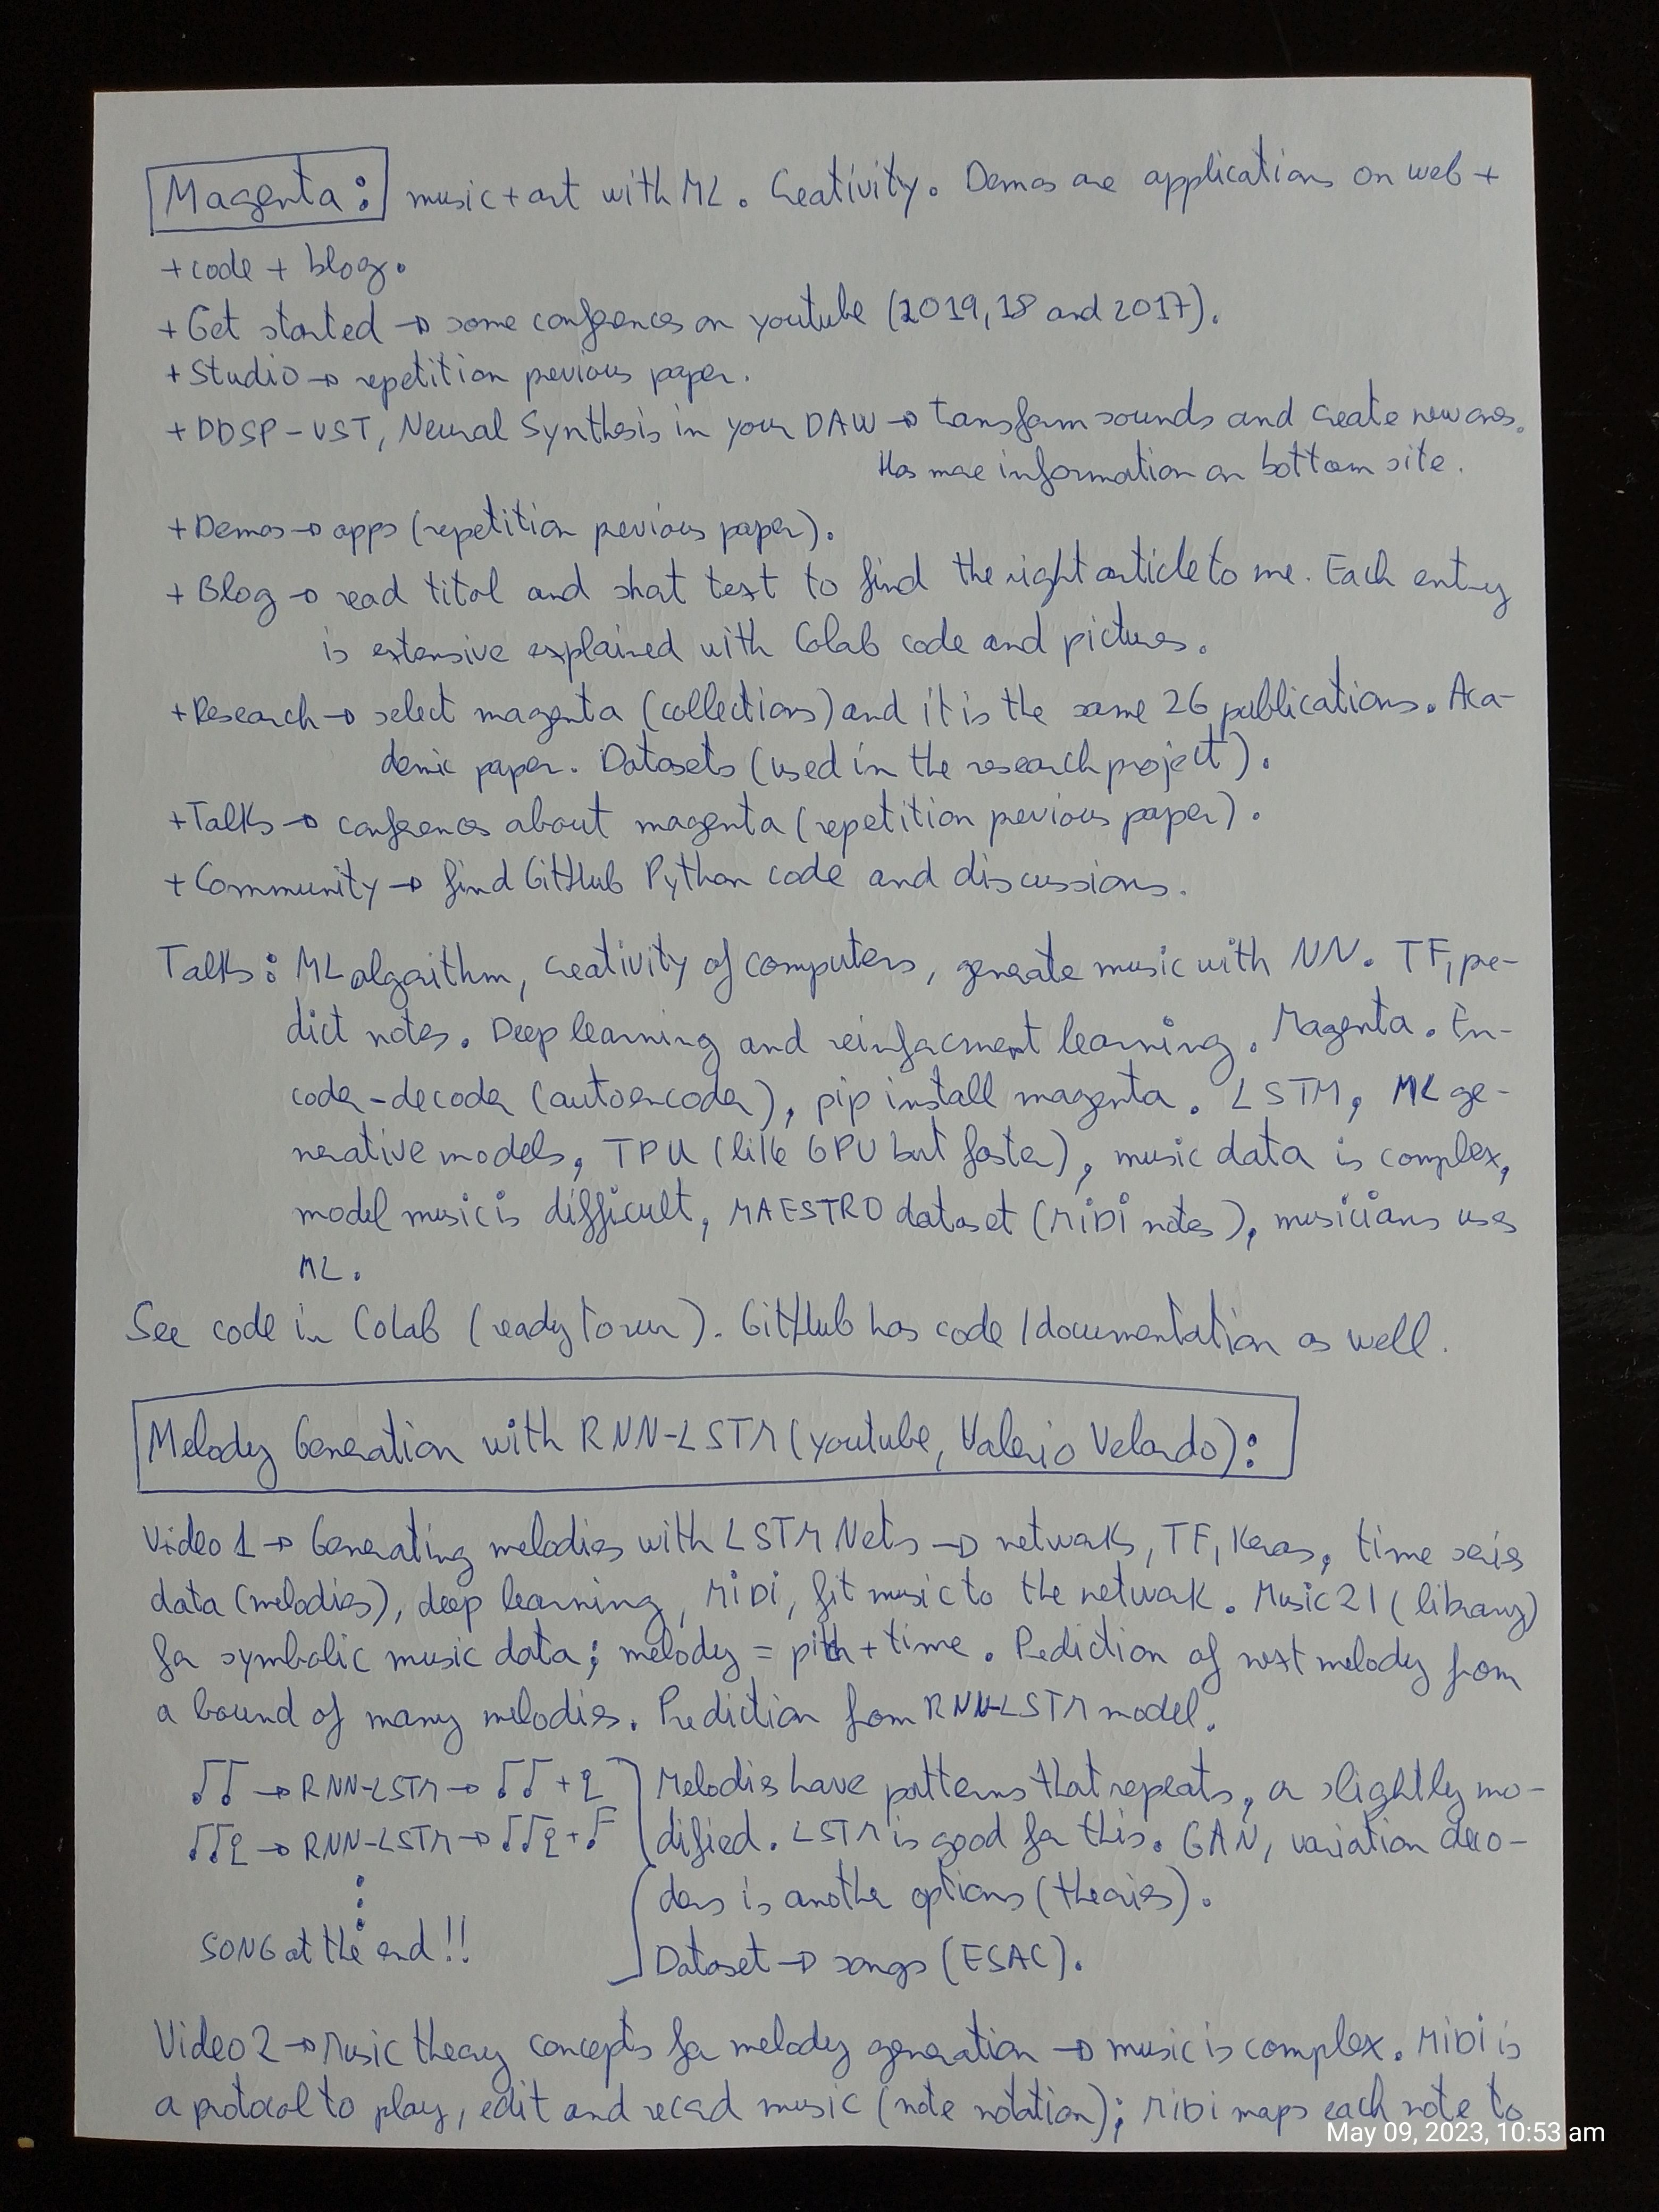 Magenta: music+art with ML. Creativity. Demos are applications on web +
+code + blog.
+Get started → some conferences on youtube (2019, 18 and 2017).
+Studio → repetition previous paper.
+DDSP-VST, Neural Synthesis in your DAW → transform sounds and create new ones.
Has more information on bottom site.
+Demos → apps (repetition previous paper).
+Blog → read titol and short text to find the right article to me. Each entry
is extensive explained with Colab code and pictures.
+Research → select magenta (collections) and it is the same 26 publications. Aca-
demic paper. Datasets (used in the research project).
+Talks → conferences about magenta (repetition previous paper).
+Community → find GitHub Python code and discussions.
Talks: ML algorithm, creativity of computers, generate music with NN. TF, pre-
dict notes. Deep learning and reinforcment learning. Magenta. En-
coder-decoder (autoencoder), pip install magenta. LSTM, ML ge-
nerative models, TPU (like GPU but faster), music data is complex,
model music is difficult, MAESTRO dataset (MIDI notes), musicians uses
ML.
See code in Colab (ready to run). GitHub has code/documentation as well.
Melody Generation with RNN-LSTM (youtube, Valerio Velardo):
Video 1 → Generating melodies with LSTM Nets → networks, TF, Keras, time series
data (melodies), deep learning, MIDI, fit music to the network. Music21 (library)
for symbolic music data; melody = pitch + time. Prediction of next melody from
a bound of many melodies. Prediction from RNN-LSTM model.
♫ → RNN-LSTM → ♫ + Melodies have patterns that repeats, or slightly mo-
♫ → RNN-LSTM → ♫ + dified. LSTM is good for this. GAN, variation deco-
ders is another options (theories).
SONG at the end!!
Dataset → songs (ESAC).
Video 2 → Music theory concepts for melody generation → music is complex. MIDI is
a protocol to play, edit and record music (note notation); MIDI maps each note to
May 09, 2023, 10:53 am